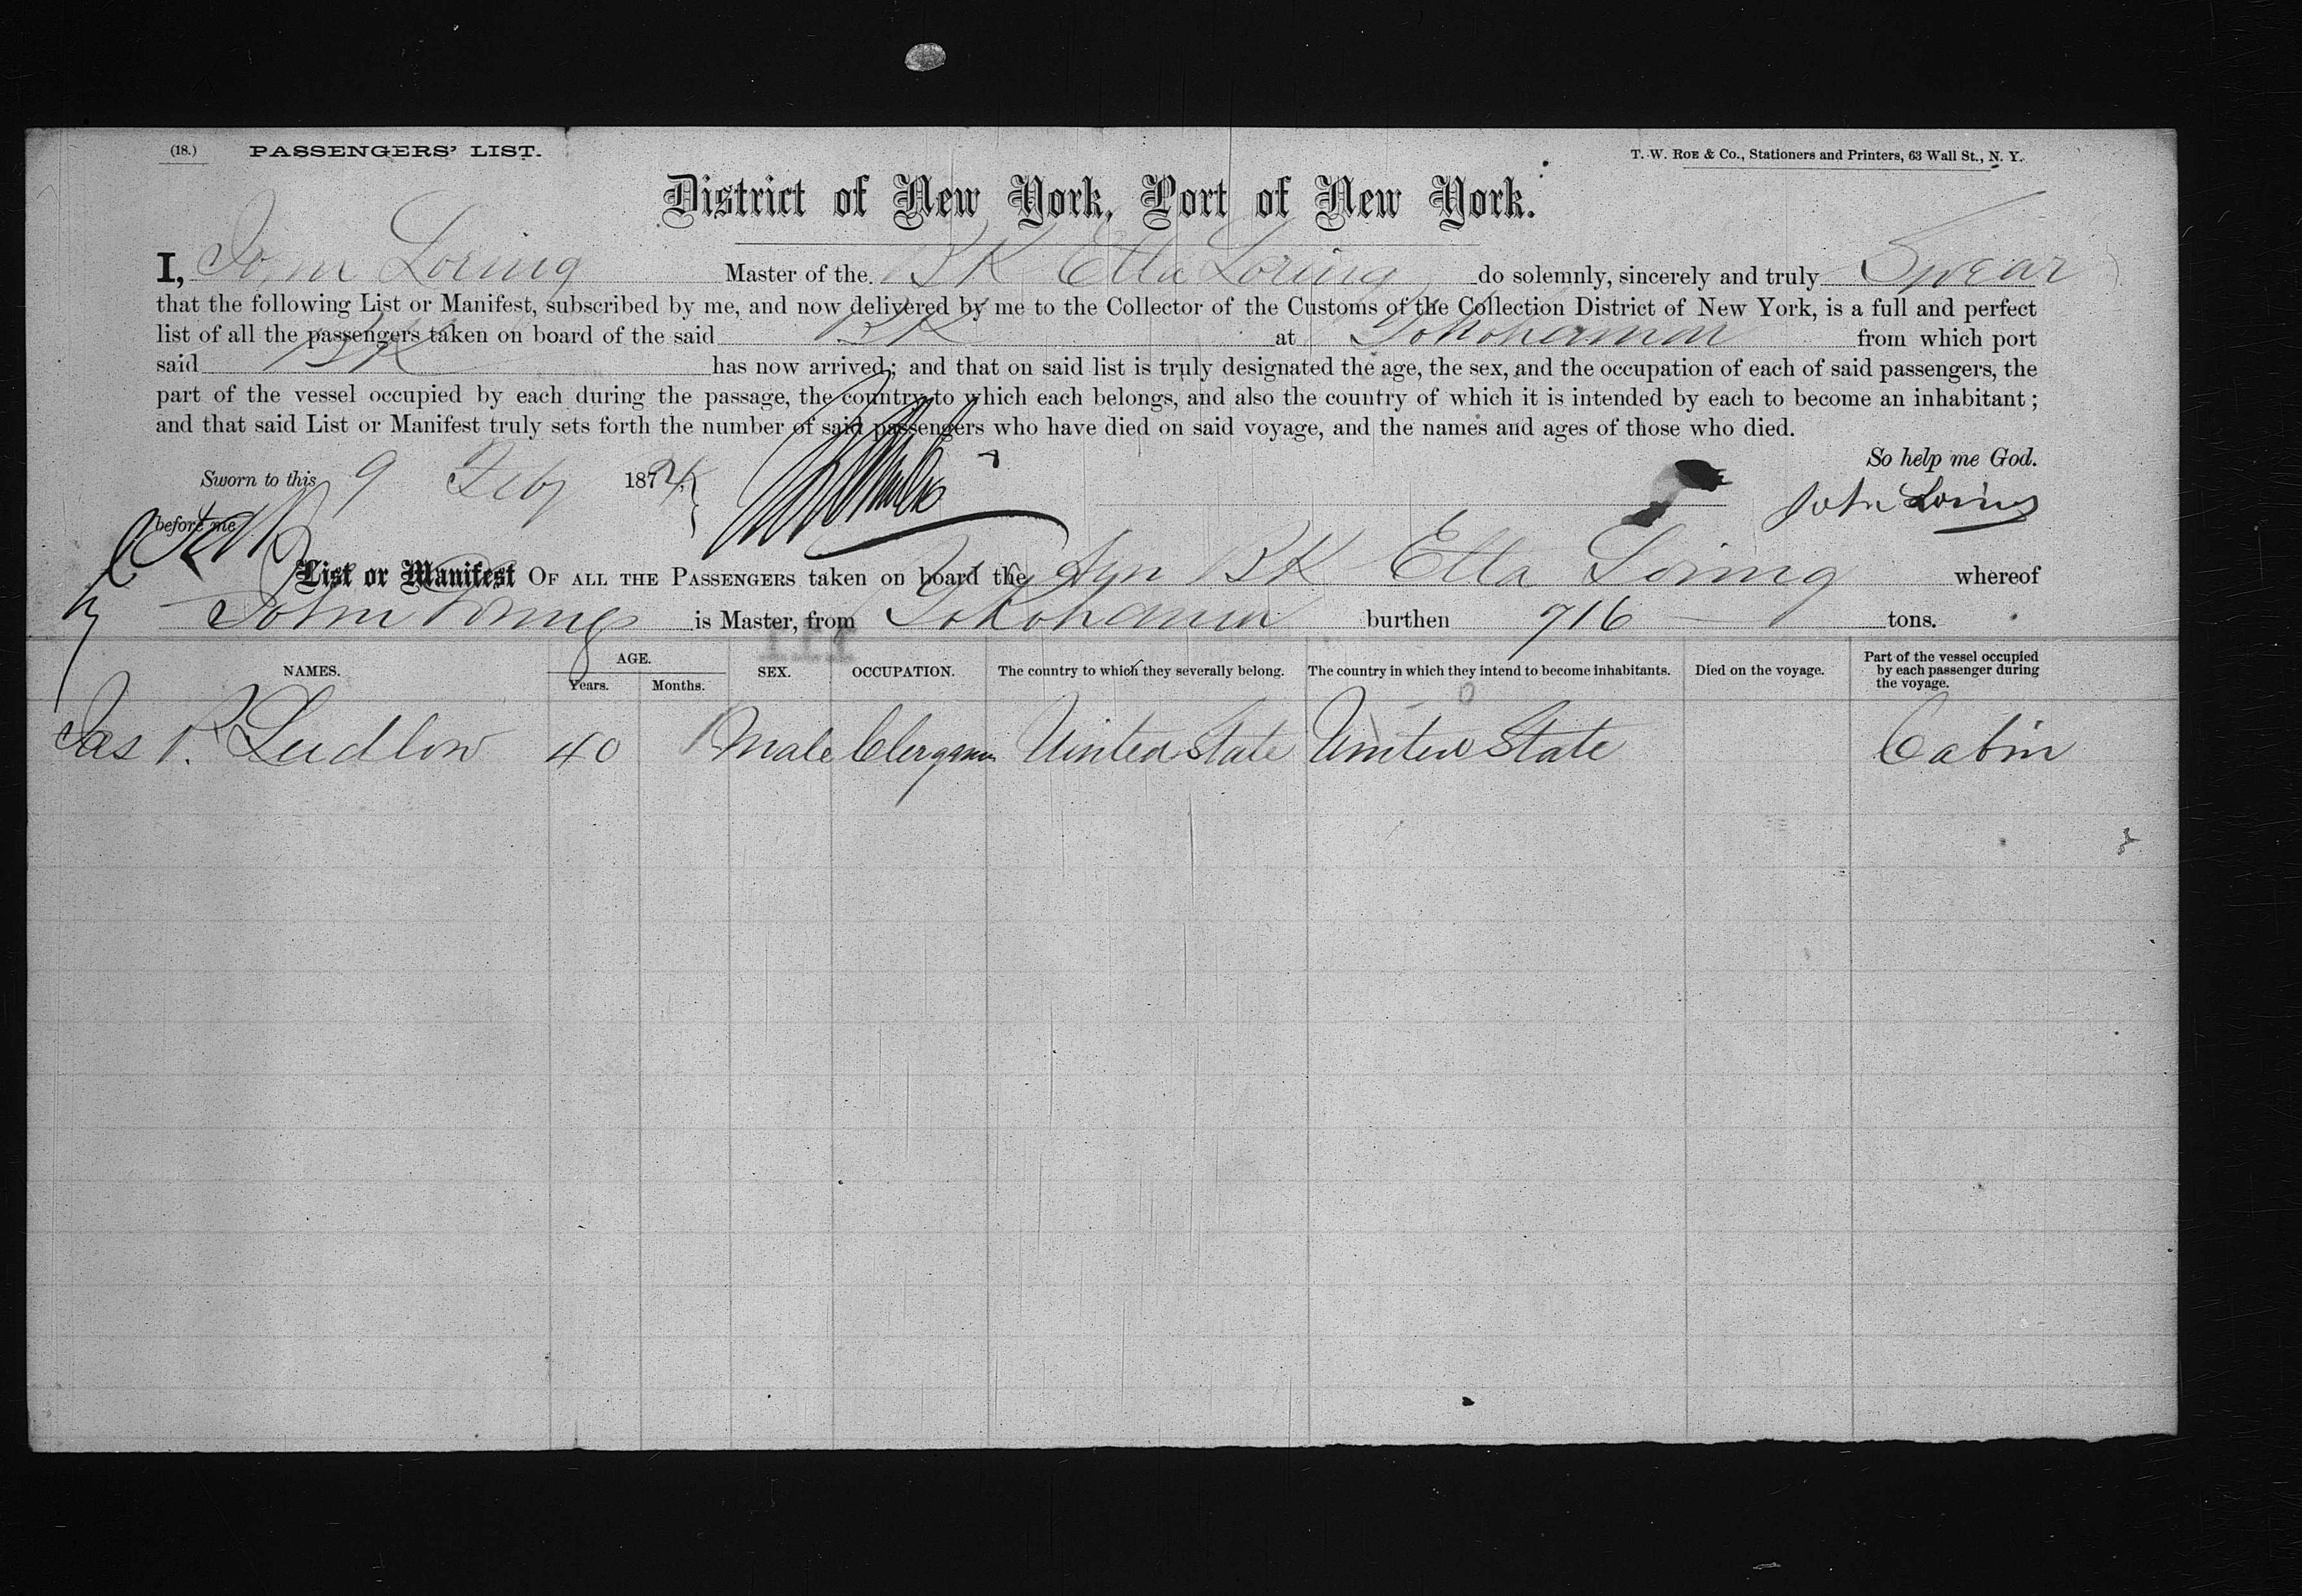 (18.) PASSENGERS' LIST. T. W. ROE & Co., Stationers and Printers, 63 Wall St., N. Y.
District of New York, Port of New York.
I, John Loring Master of the BK Etta Loring do solemnly, sincerely and truly Swear
that the following List or Manifest, subscribed by me, and now delivered by me to the Collector of the Customs of the Collection District of New York, is a full and perfect
list of all the passengers taken on board of the said BK at Yokohama from which port
said BK has now arrived; and that on said list is truly designated the age, the sex, and the occupation of each of said passengers, the
part of the vessel occupied by each during the passage, the country to which each belongs, and also the country of which it is intended by each to become an inhabitant;
and that said List or Manifest truly sets forth the number of said passengers who have died on said voyage, and the names and ages of those who died.
So help me God.
Sworn to this 9 Feby 1874
John Loring
before me
List or Manifest OF ALL THE PASSENGERS taken on board the BK Etta Loring whereof
John Loring is Master, from Yokohama burthen 716 tons.
NAMES. AGE. Years. Months. SEX. OCCUPATION. The country to which they severally belong. The country in which they intend to become inhabitants. Died on the voyage. Part of the vessel occupied by each passenger during the voyage.
Jas P. Ludlow 40 Male Clergman United State United State Cabin